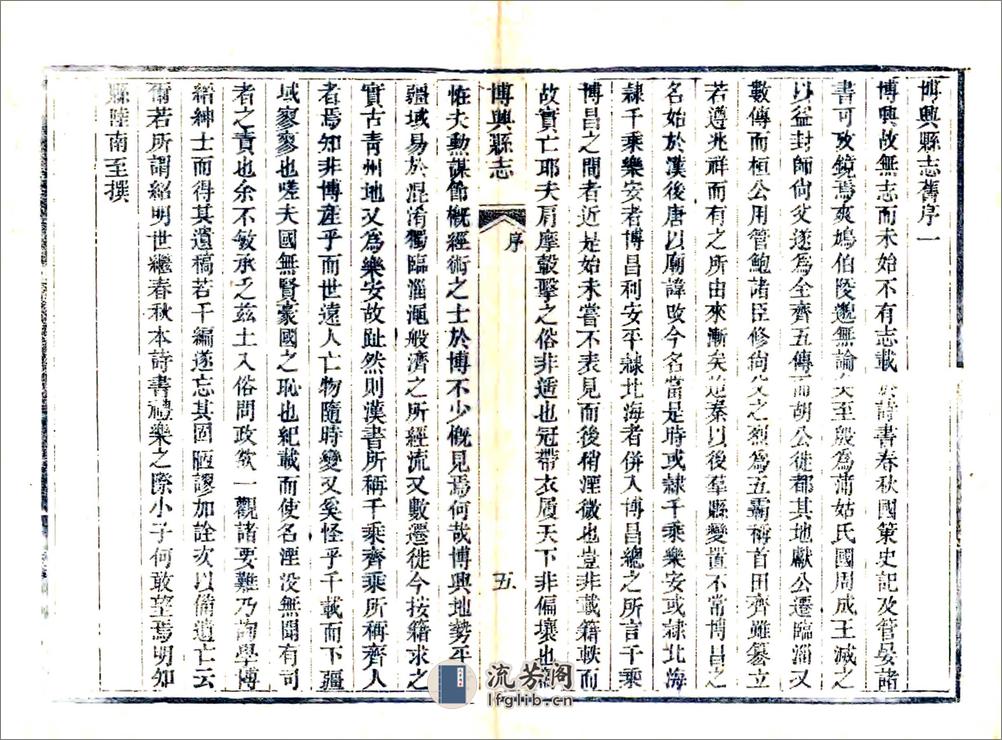 博興縣志舊序一
博興故無志而未始不有志載 詩書春秋國策史記及管晏諸
書可攷鏡焉爽鳩伯陵邈無論矣至殷為蒲姑氏國周成王滅之
以益封師尚父遂為全齊五傳而胡公徙都其地獻公遷臨淄又
數傳而桓公用管鮑諸臣修尚父之烈為五霸稱首田齊雖篡立
若遵兆祥而有之所由來漸矣迨秦以後羣縣變置不常博昌之
名始於漢後唐以廟諱改今名當是時或隸千乘樂安或隸北海
隸千乘樂安者博昌利安平隸北海者併入博昌總之所言千乘
博昌之間者近是始未嘗不表見而後稍湮微也豈非載籍軼而
故實亡耶夫肩摩轂擊之俗非遥也冠帶衣履天下非偏壤也
博興縣志
序
五
恠夫勲謀節概經術之士於博不少概見焉何哉博興地勢平
疆域易於混淆獨臨淄澠般濟之所經流又數遷徙今按籍求之
實古青州地又為樂安故趾然則漢書所稱千乘齊乘所稱齊人
者焉知非博産乎而世遠人亡物隨時變又奚怪乎千載而下疆
域寥寥也嗟夫國無賢豪國之恥也紀載而使名湮没無聞有司
者之責也余不敏承乏兹土入俗問政欲一觀諸要難乃詢學博
縉紳士而得其遺稿若干編遂忘其固陋謬加詮次以備遺亡云
爾若所謂紹明世繼春秋本詩書禮樂之際小子何敢望焉明知
縣陸南至撰
流芳阁
lfglib.cn